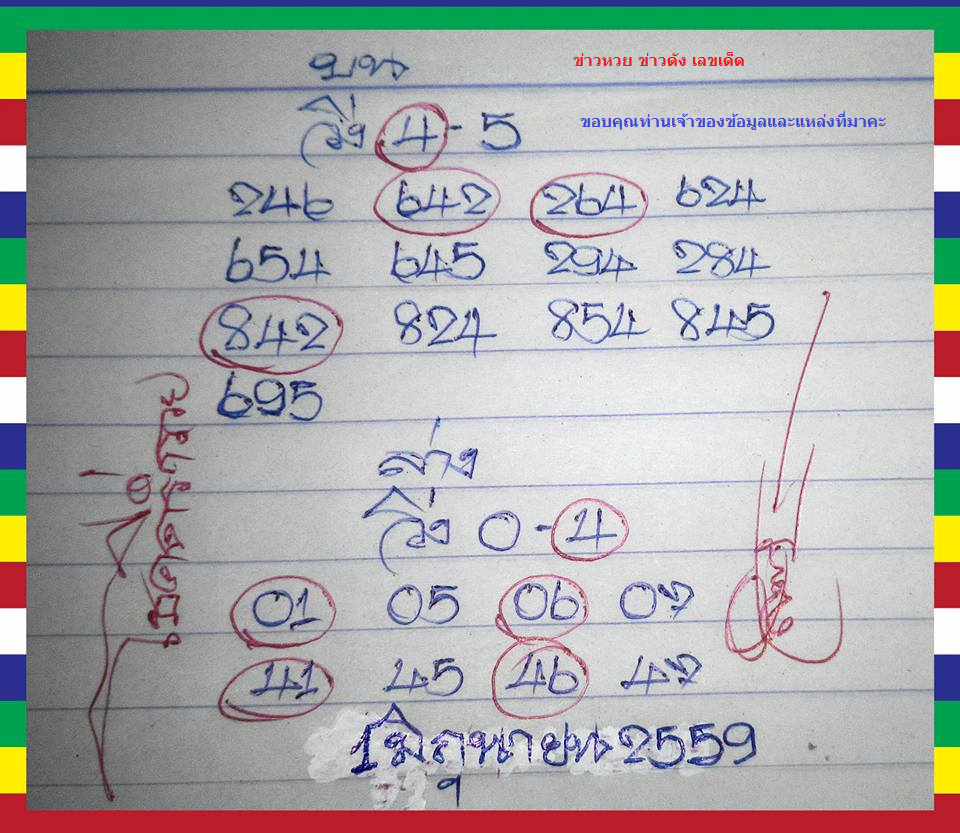 ข่าวหวย ข่าวดัง เลขเด็ด
ขอบคุณท่านเจ้าของข้อมูลและแหล่งที่มาคะ
บน
วิ่ง 4 - 5
246 642 264 624
654 645 294 284
842 824 854 845
695
ล่าง
วิ่ง 0 - 4
01 05 06 07
41 45 46 47
1 มิถุนายน 2559